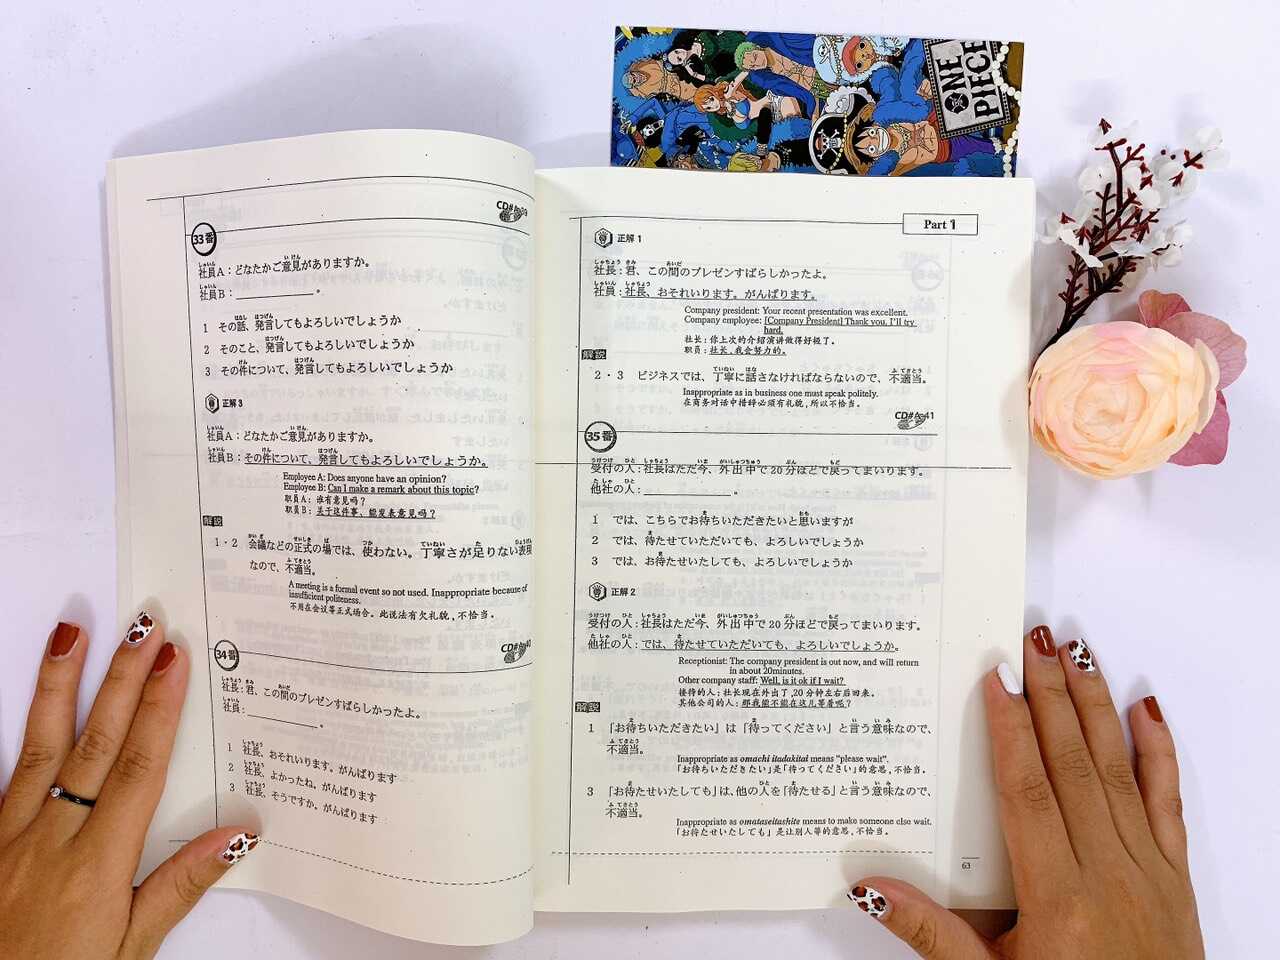 CD#
33番
社員A：どなたかご意見がありますか。
社員B：＿＿＿＿＿。
1 その話、発言してもよろしいでしょうか
2 そのこと、発言してもよろしいでしょうか
3 その件について、発言してもよろしいでしょうか
正解3
社員A：どなたかご意見がありますか。
社員B：その件について、発言してもよろしいでしょうか。
Employee A: Does anyone have an opinion?
Employee B: Can I make a remark about this topic?
职员A：谁有意见吗？
职员B：关于这件事、能发表意见吗？
解説
1・2 会議などの正式の場では、使わない。丁寧さが足りない表現
なので、不適当。
A meeting is a formal event so not used. Inappropriate because of
insufficient politeness.
不用在会议等正式场合。此说法有欠礼貌，不恰当。
CD# 40
34番
社長：君、この間のプレゼンすばらしかったよ。
社員：＿＿＿＿＿。
1 社長、おそれいります。がんばります
2 社長、よかったね。がんばります
3 社長、そうですか。がんばります
ONE PIECE
Part 1
正解1
社長：君、この間のプレゼンすばらしかったよ。
社員：社長、おそれいります。がんばります。
Company president: Your recent presentation was excellent.
Company employee: [Company President] Thank you. I'll try
hard.
社长：你上次的介绍演讲做得好极了。
职员：社长，我会努力的。
解説
2・3 ビジネスでは、丁寧に話さなければならないので、不適当。
Inappropriate as in business one must speak politely.
在商务对话中措辞必须有礼貌，所以不恰当。
CD# 41
35番
受付の人：社長はただ今、外出中で20分ほどで戻ってまいります。
他社の人：＿＿＿＿＿。
1 では、こちらでお待ちいただきたいと思いますが
2 では、待たせていただいても、よろしいでしょうか
3 では、お待たせいたしても、よろしいでしょうか
正解2
受付の人：社長はただ今、外出中で20分ほどで戻ってまいります。
他社の人：では、待たせていただいても、よろしいでしょうか。
Receptionist: The company president is out now, and will return
in about 20minutes.
Other company staff: Well, is it ok if I wait?
接待的人：社长现在外出了，20分钟左右后回来。
其他公司的人：那我能不能在这儿等着呢？
解説
1 「お待ちいただきたい」は「待ってください」と言う意味なので、
不適当。
Inappropriate as omachi itadakitai means "please wait".
「お待ちいただきたい」是「待ってください」的意思，不恰当。
3 「お待たせいたしても」は、他の人を「待たせる」と言う意味なので、
不適当。
Inappropriate as omataseitashite means to make someone else wait.
「お待たせいたしても」是让别人等的意思，不恰当。
63